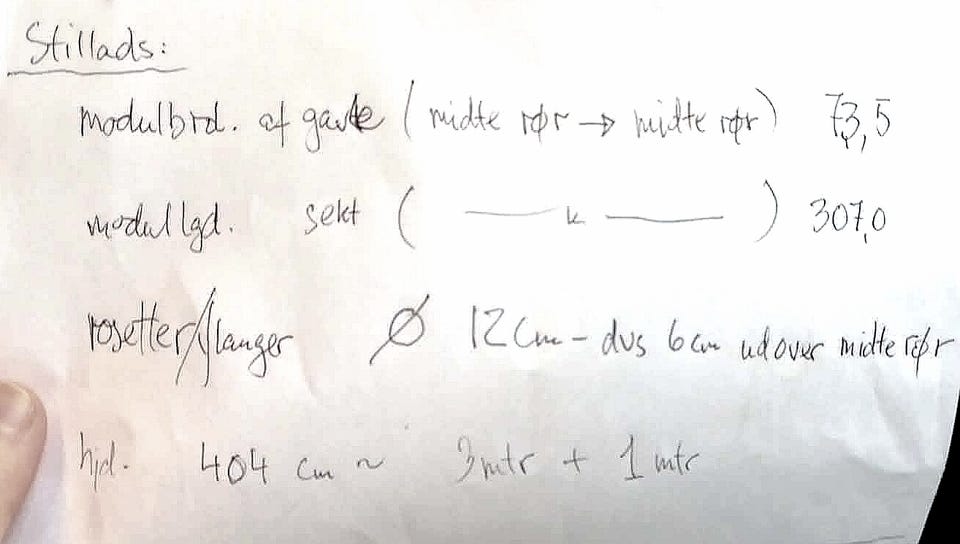 Stillads:
modulbrd. af gavle ( midte rør → midte rør ) 73,5
modullgd. sekt ( —— " —— ) 307,0
rosetter/flanger Ø 12 cm - dvs 6 cm udover midte rør
hjd. 404 cm ~ 3 mtr + 1 mtr